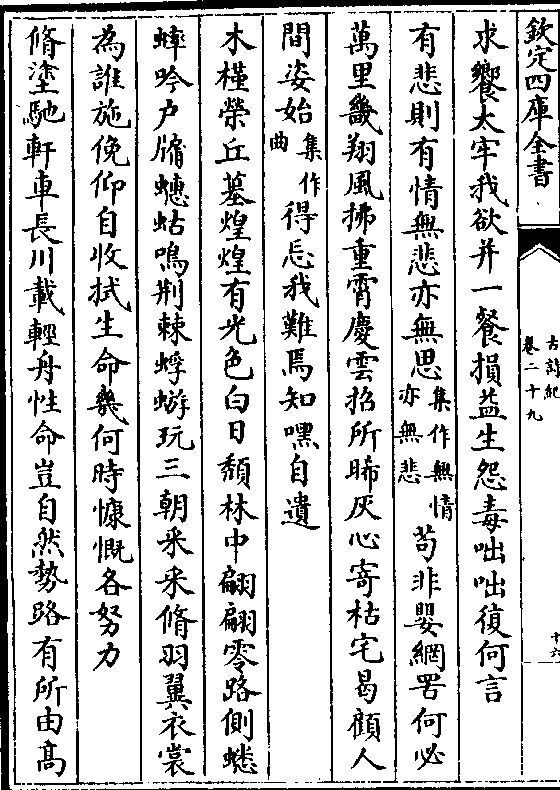 欽定四庫全書
古詩紀
卷二十九
十六
求饗太牢我欲并一餐損益生怨毒咄咄復何言
有悲則有情無悲亦無思集作無情亦無悲苟非嬰網罟何必
萬里畿翔風拂重霄慶雲招所晞灰心寄枯宅曷顧人
間姿始集作曲得忘我難焉知嘿自遺
木槿榮丘墓煌煌有光色白日頹林中翩翩零路側蟋
蟀吟户牖蟪蛄鳴荆棘蜉蝣玩三朝采采脩羽翼衣裳
為誰施俛仰自收拭生命㡬何時慷慨各努力
脩塗馳軒車長川載輕舟性命豈自然勢路有所由髙